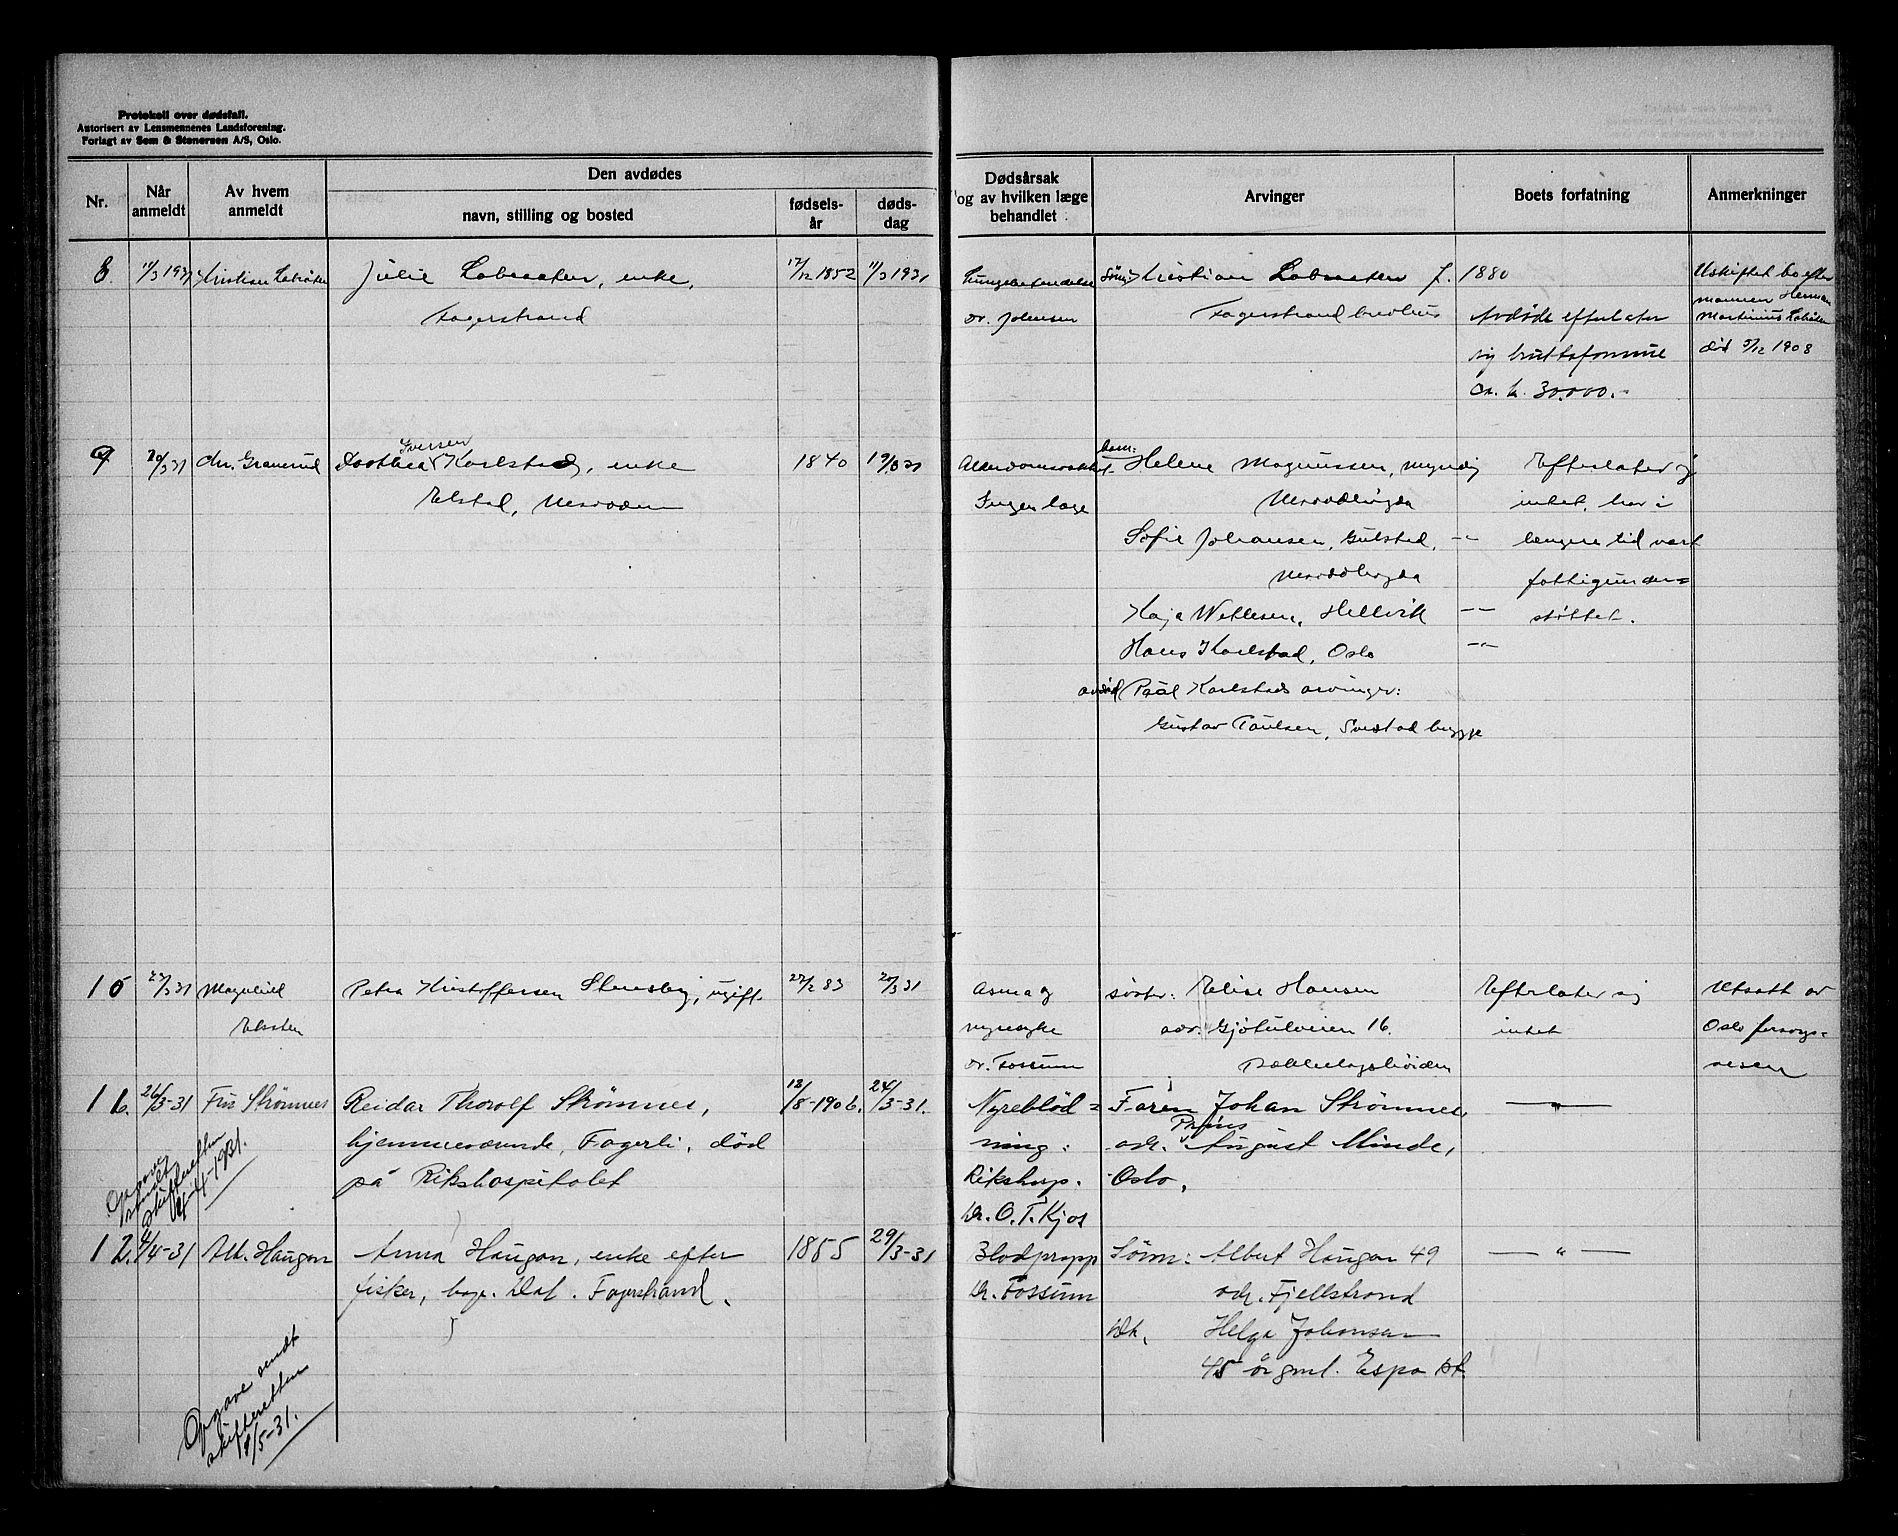 Protokoll over dødsfall.
Autorisert av Lensmennenes Landsforening.
Forlagt av Sem & Stenersen A/S, Oslo.
Nr.
Når anmeldt
Av hvem anmeldt
Den avdødes
navn, stilling og bosted
fødsels-
år
døds-
dag
Dødsårsak
og av hvilken læge
behandlet
Arvinger
Boets forfatning
Anmerkninger
8. 11/3 1931 Kristian
Julie Labraaten, enke,
Fagerstrand
17/12 1852 11/3 1931
Lungebetendelse
Dr. Johnsen
Sønn: Kristian Labraaten f. 1880
Fagerstrand
Avdøde efterlater
sig bruttoformue
ca. kr. 30.000.-
Uskiftet bo efter
mannen Herman
Martinius
død 5/12 1908
9 20/3 31 Chr. Granerud
Iversen
Dorthea Karlstad, enke
Elstad, Nesodden
1840 19/3 31
Ingen læge
Barn:
1. Helene Magnussen, myndig
Sofie Johansen, Gulstad, -"-
Kaja Wetlesen, Hellvik -"-
Hans Karlstad, Oslo -"-
avdød Paal Karlstads arvinger:
Gustav Paulsen, Svestad brygge
Efterlater sig
intet, har i
lengere tid vært
fattigunder=
støttet.
10 27/3 31 Magnhild
Petra Kristoffersen Stensby, ugift.
27/2 83 20/3 31
Asma og
nyresyke
Dr. Fossum
søster: Elise Hansen
adr. Gjøtulveien 16.
Bekkelagshøiden
Efterlater sig
intet
Utsatt av
Oslo forsorgs=
vesen
11. 26/3-31 Fru Strømnes
Reidar Thorolf Strømnes,
hjemmeværende, Fagerli, død
på Rikshospitalet
13/8-1906. 24/3-31.
Nyreblød=
ning.
Rikshosp.
Dr. O. T. Kjos
Faren Johan Strømnes,
Prins
adr. August Minde,
Oslo.
— " —
Opgave
sendt
skifteretten
1/4-1931.
12. 4/4-31 Alb. Haugan
Anna Haugan, enke efter
fisker, Fagerstrand.
1855 29/3-31
Blodpropp
Dr. Fossum
Sønn: Albert Haugan 49
adr. Fjellstrand
Dtr. Helga Johansen
45 år gml. Espa st.
— " —
Opgave sendt
skifteretten
1/5-31.